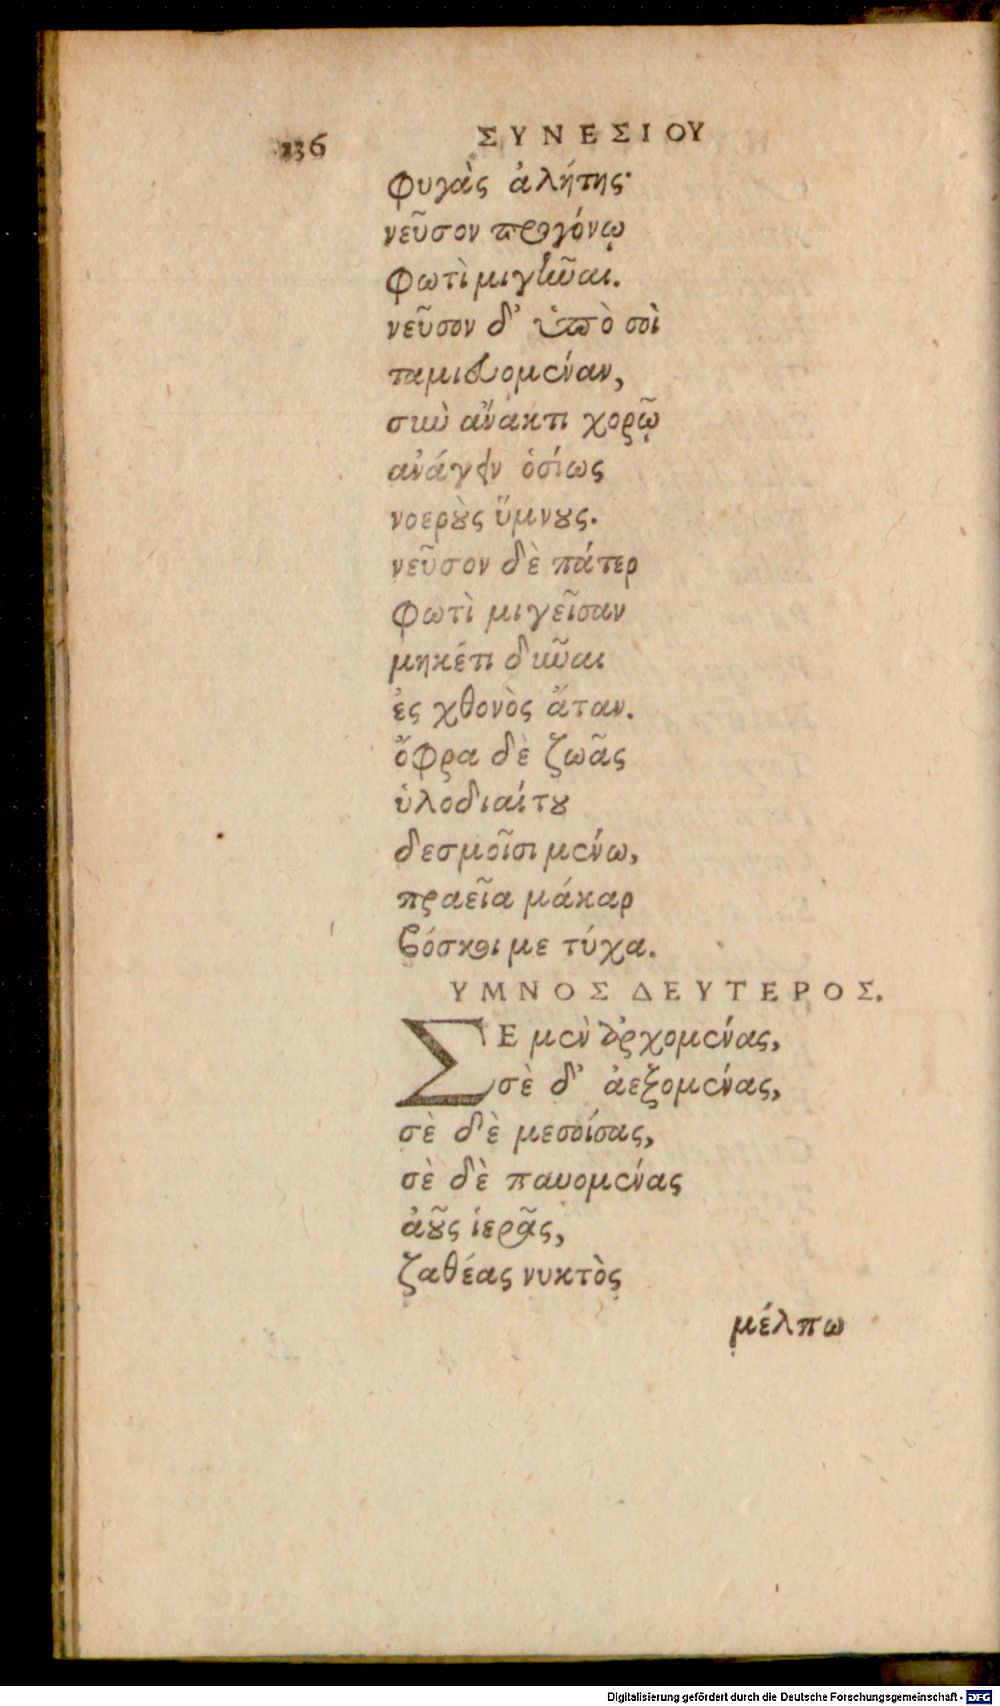 136 ΣΥΝΕΣΙΟΥ
φυγὰς ἀλήτης·
νεῦσον προγόνῳ
φωτὶ μιγῆναι.
νεῦσον δ' ὑπὸ σοὶ
ταμιδυομέναν,
σὺν ἄνακτι χορῷ
ἀνάγειν ὁσίως
νοεροὺς ὕμνους.
νεῦσον δὲ πάτερ
φωτὶ μιγεῖσαν
μηκέτι δῦναι
ἐς χθονὸς ἄταν.
ὄφρα δὲ ζωᾶς
ὑλοδιαίτου
δεσμοῖσι μένω,
πραεῖα μάκαρ
βόσκοι με τύχα.
ΥΜΝΟΣ ΔΕΥΤΕΡΟΣ.
ΣΕ μὲν ἀρχομένας,
σὲ δ' ἀεξομένας,
σὲ δὲ μεσοίσας,
σὲ δὲ παυομένας
ἀοῦς ἱερᾶς,
ζαθέας νυκτὸς
μέλπω
Digitalisierung gefördert durch die Deutsche Forschungsgemeinschaft - DFG